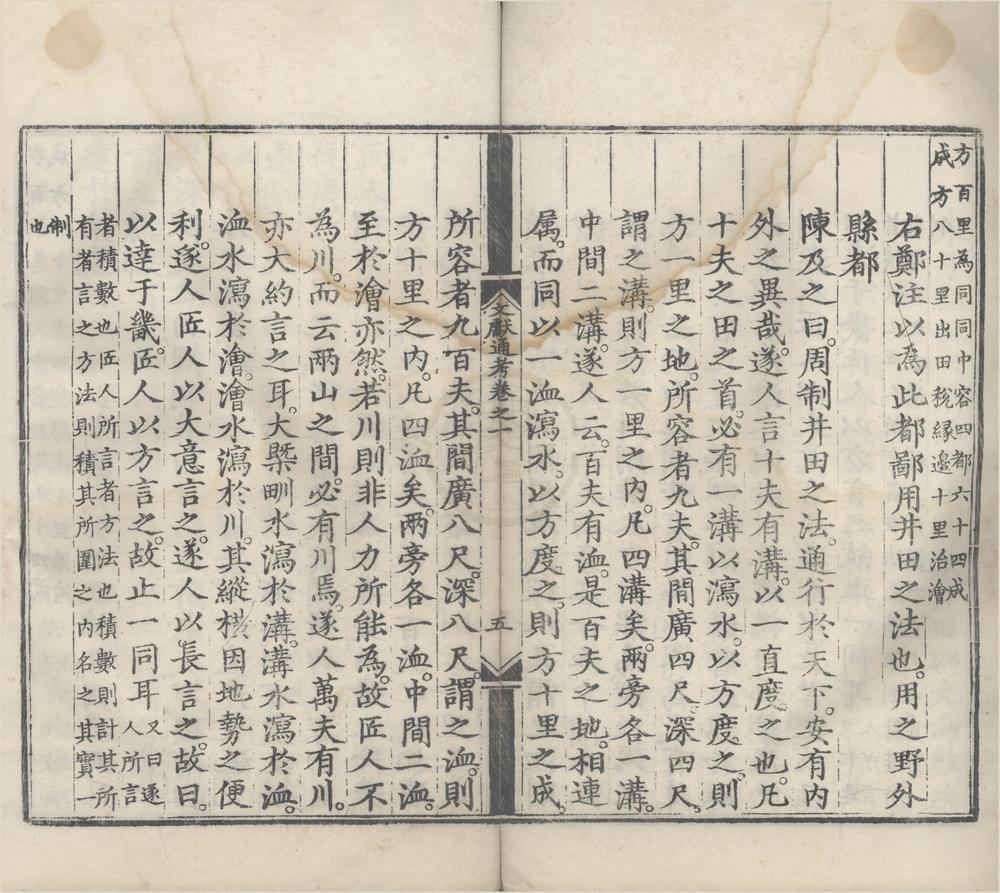 方百里為同同中容四都六十四成
成方八十里出田稅緣邊十里治澮
右鄭注以為此都鄙用井田之法也用之野外
縣都
陳及之曰周制井田之法通行於天下安有內
外之異哉遂人言十夫有溝以一直度之也凡
十夫之田之首必有一溝以瀉水以方度之則
方一里之地所容者九夫其間廣四尺深四尺
謂之溝則方一里之內凡四溝矣兩旁各一溝
中間二溝遂人云百夫有洫是百夫之地相連
属而同以一洫瀉水以方度之則方十里之成
文獻通考卷之一
五
所容者九百夫其間廣八尺深八尺謂之洫則
方十里之內凡四洫矣兩旁各一洫中間二洫
至於澮亦然若川則非人力所能為故匠人不
為川而云兩山之間必有川焉遂人萬夫有川
亦大約言之耳大槩甽水瀉於溝溝水瀉於洫
洫水瀉於澮澮水瀉於川其縱横因地勢之便
利遂人匠人以大意言之遂人以長言之故曰
以達于畿匠人以方言之故止一同耳又曰遂
人所言
者積數也匠人所言者方法也積數則計其所
有者言之方法則積其所圍之內名之其實一
制
也